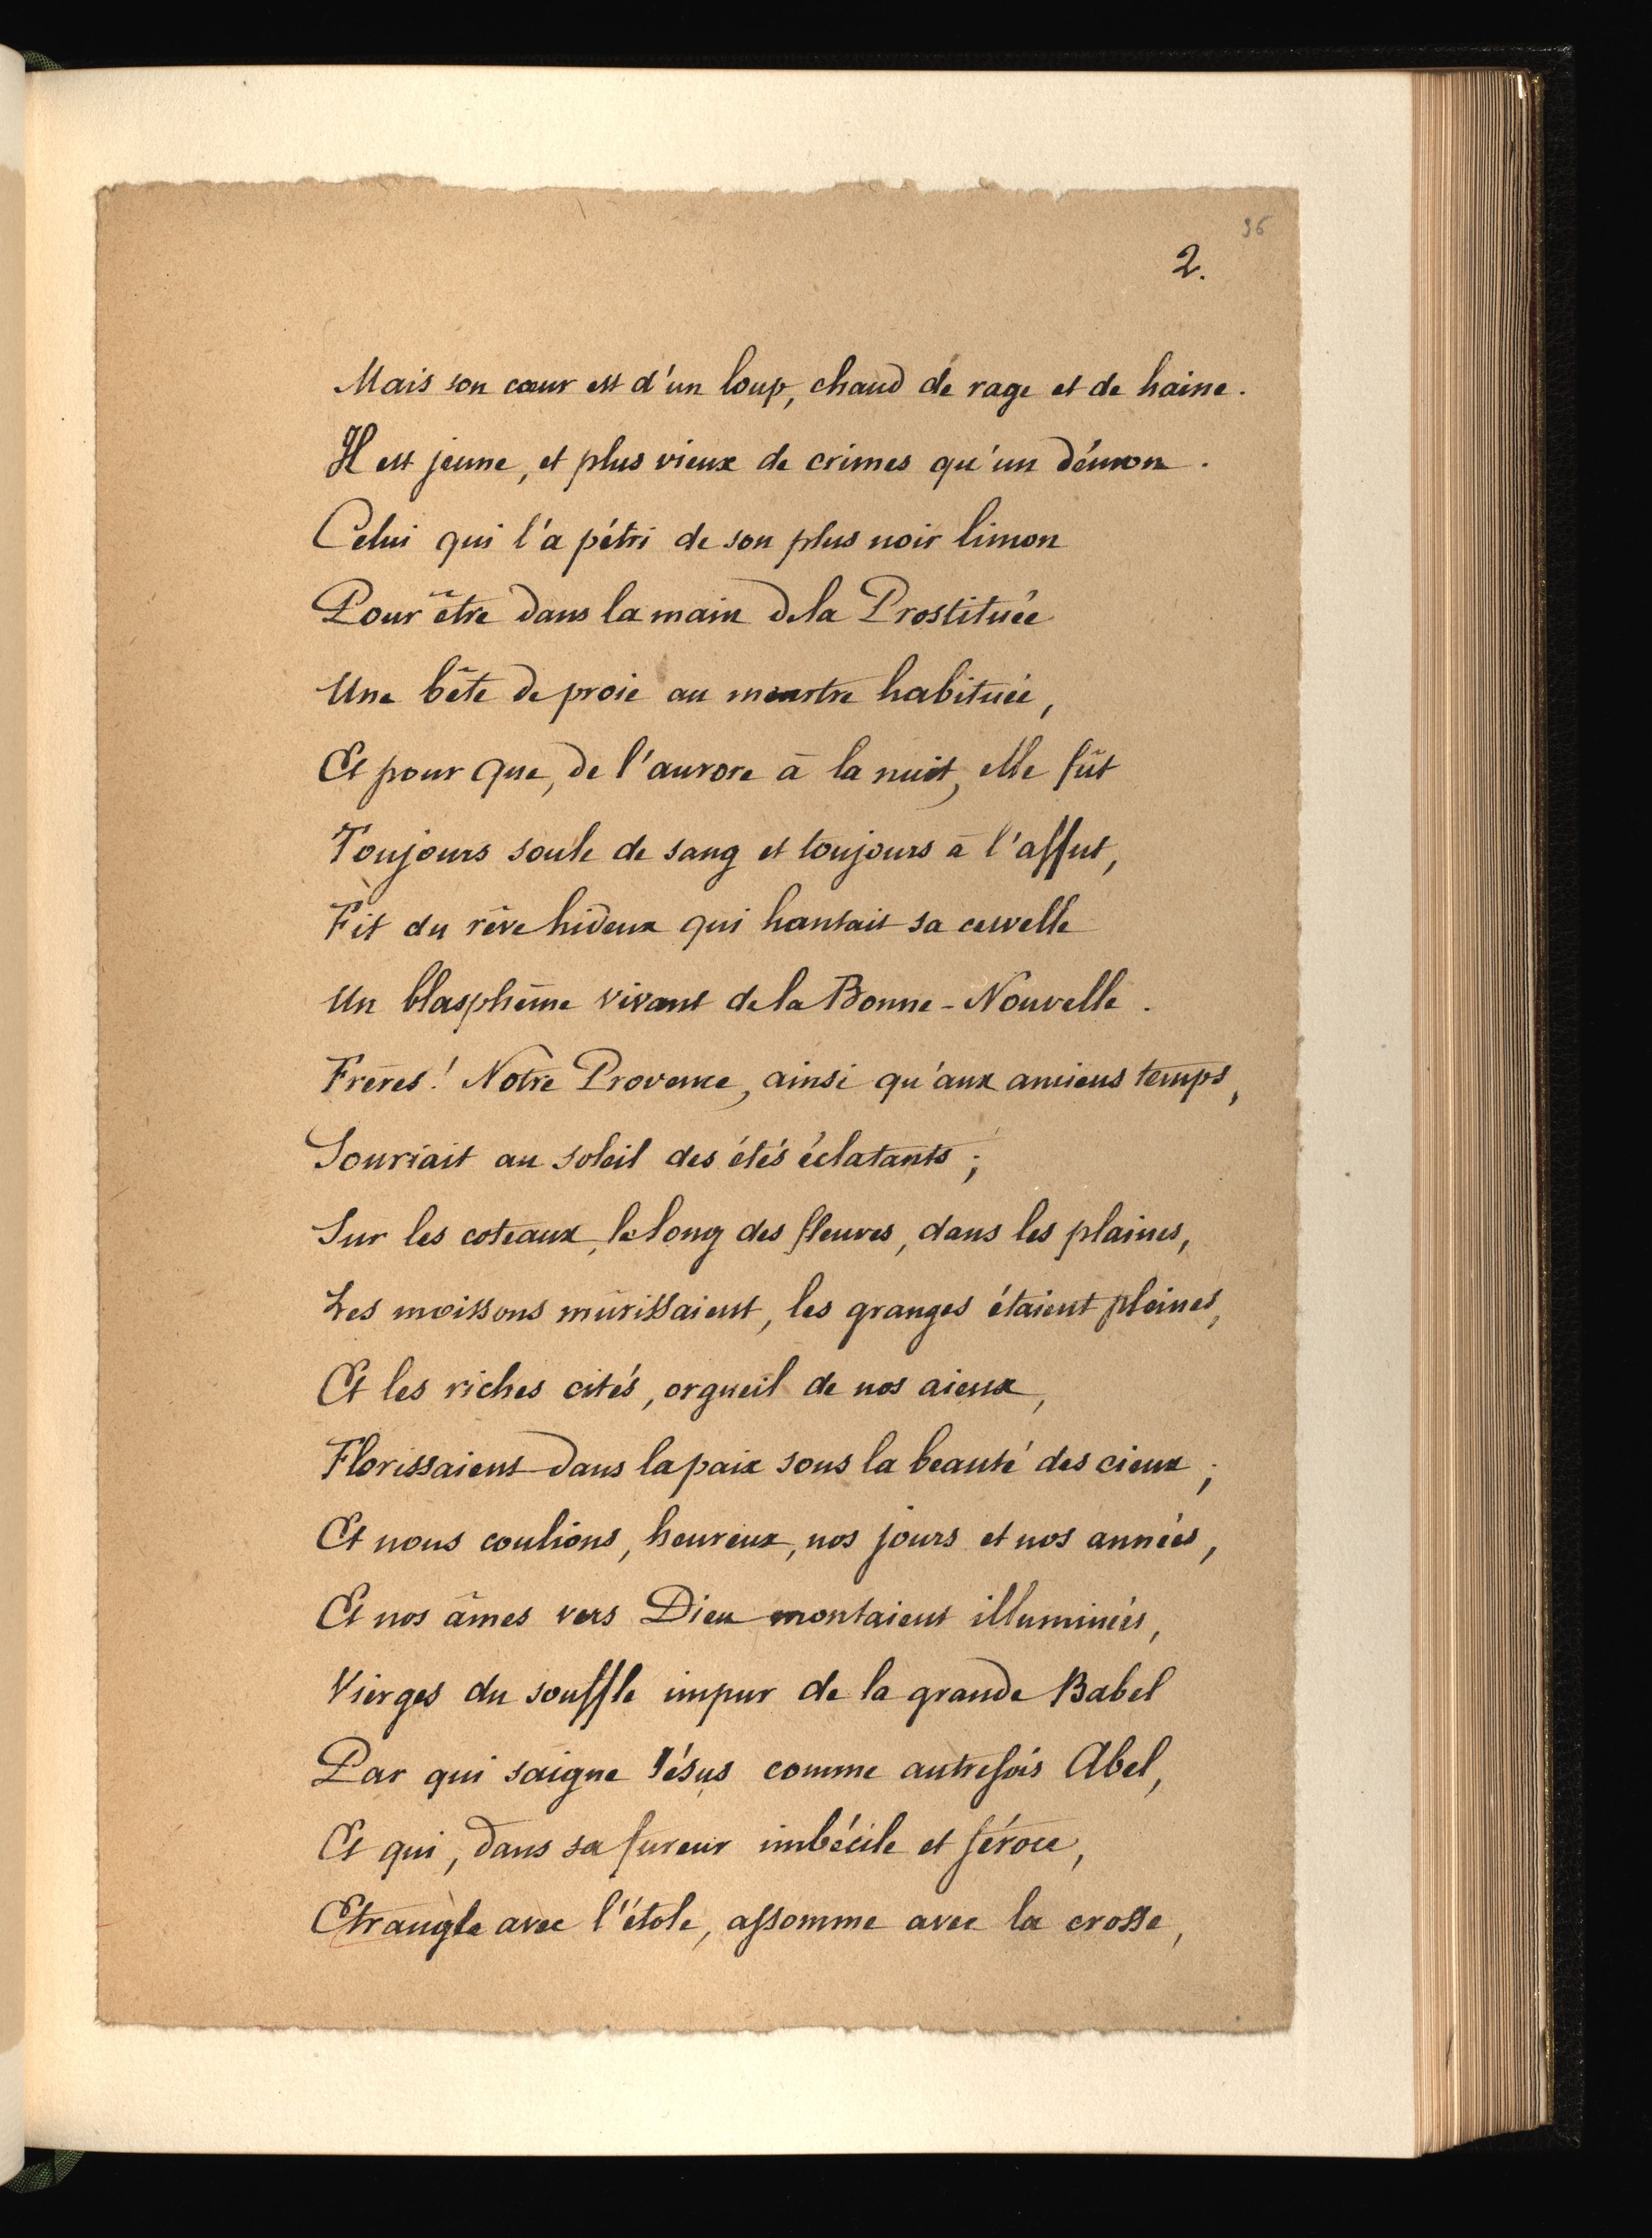 96
2.
Mais son cœur est d'un loup, chaud de rage et de haine.
Il est jeune, et plus vieux de crimes qu'un démon.
Celui qui l'a pétri de son plus noir limon
Pour être dans la main de la Prostituée
Une bête de proie au meurtre habituée,
Et pour que, de l'aurore à la nuit, elle fût
Toujours soule de sang et toujours à l'affut,
Fit du rêve hideux qui hantait sa cervelle
Un blasphème vivant de la Bonne-Nouvelle.
Frères! Notre Provence, ainsi qu'aux anciens temps,
Souriait au soleil des étés éclatants;
Sur les coteaux, le long des fleuves, dans les plaines,
Les moissons mûrissaient, les granges étaient pleines,
Et les riches cités, orgueil de nos aieux,
Florissaient dans la paix sous la beauté des cieux;
Et nous coulions, heureux, nos jours et nos années,
Et nos âmes vers Dieu montaient illuminées,
Vierges du souffle impur de la grande Babel
Par qui saigne Jésus comme autrefois Abel,
Et qui, dans sa fureur imbécile et féroce,
Etrangle avec l'étole, assomme avec la crosse,